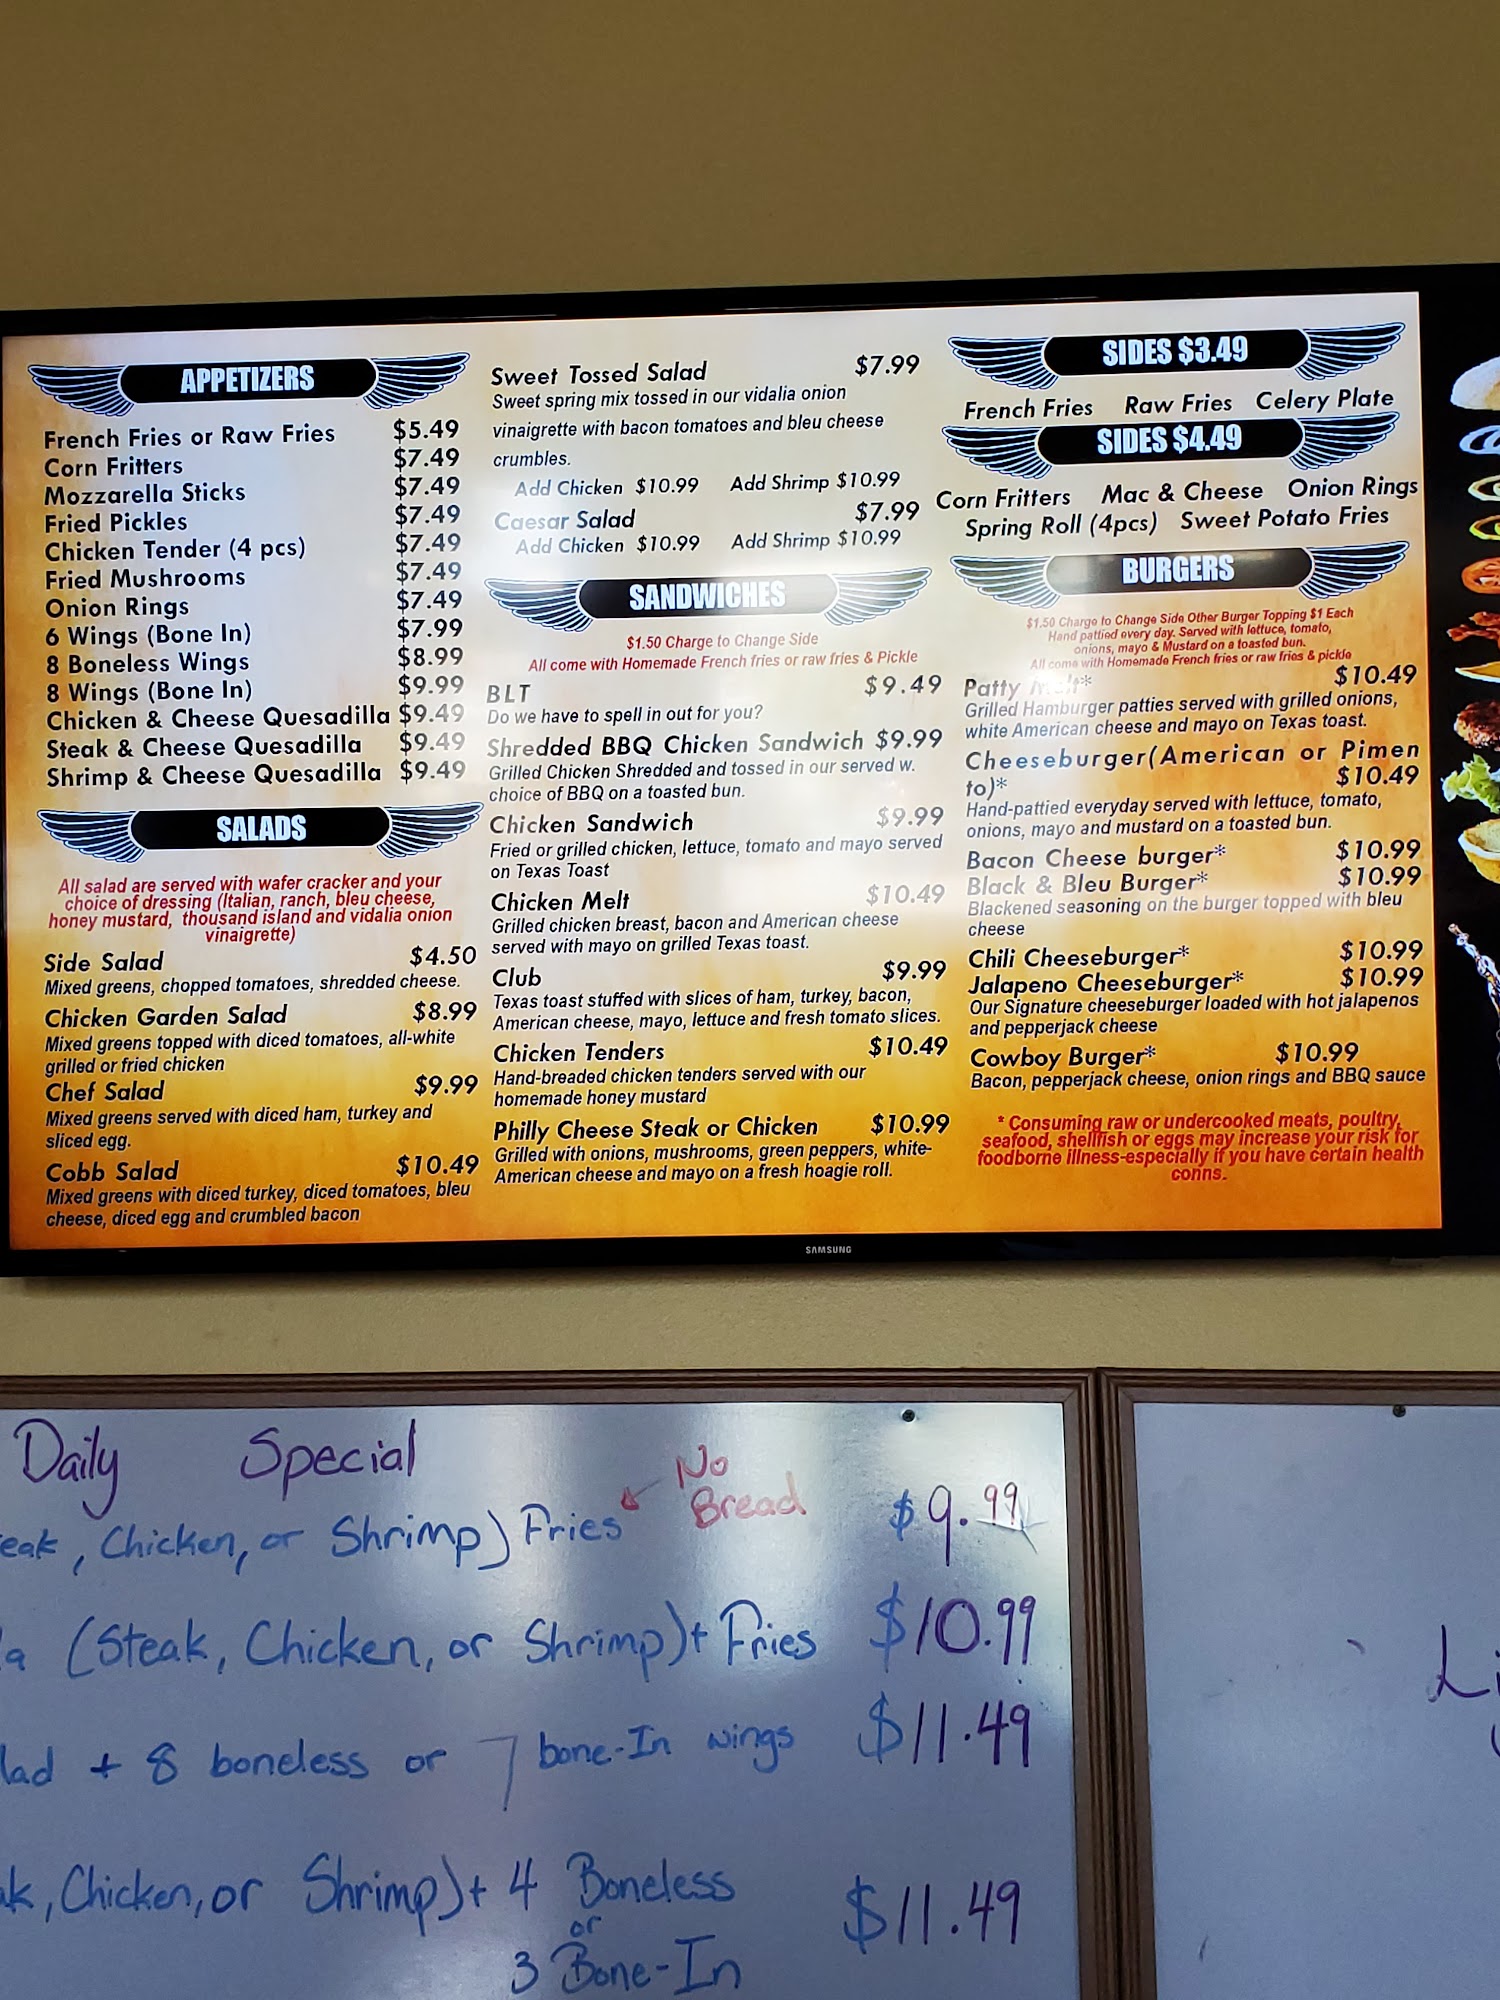 APPETIZERS
French Fries or Raw Fries $5.49
Corn Fritters $7.49
Mozzarella Sticks $7.49
Fried Pickles $7.49
Chicken Tender (4 pcs) $7.49
Fried Mushrooms $7.49
Onion Rings $7.49
6 Wings (Bone In) $7.99
8 Boneless Wings $8.99
8 Wings (Bone In) $9.99
Chicken & Cheese Quesadilla $9.49
Steak & Cheese Quesadilla $9.49
Shrimp & Cheese Quesadilla $9.49
SALADS
All salad are served with wafer cracker and your
choice of dressing (Italian, ranch, bleu cheese,
honey mustard, thousand island and vidalia onion
vinaigrette)
Side Salad $4.50
Mixed greens, chopped tomatoes, shredded cheese.
Chicken Garden Salad $8.99
Mixed greens topped with diced tomatoes, all-white
grilled or fried chicken
Chef Salad $9.99
Mixed greens served with diced ham, turkey and
sliced egg.
Cobb Salad $10.49
Mixed greens with diced turkey, diced tomatoes, bleu
cheese, diced egg and crumbled bacon
Sweet Tossed Salad $7.99
Sweet spring mix tossed in our vidalia onion
vinaigrette with bacon tomatoes and bleu cheese
crumbles.
Add Chicken $10.99 Add Shrimp $10.99
Caesar Salad $7.99
Add Chicken $10.99 Add Shrimp $10.99
SANDWICHES
$1.50 Charge to Change Side
All come with Homemade French fries or raw fries & Pickle
BLT $9.49
Do we have to spell in out for you?
Shredded BBQ Chicken Sandwich $9.99
Grilled Chicken Shredded and tossed in our served w.
choice of BBQ on a toasted bun.
Chicken Sandwich $9.99
Fried or grilled chicken, lettuce, tomato and mayo served
on Texas Toast
Chicken Melt $10.49
Grilled chicken breast, bacon and American cheese
served with mayo on grilled Texas toast.
Club $9.99
Texas toast stuffed with slices of ham, turkey, bacon,
American cheese, mayo, lettuce and fresh tomato slices.
Chicken Tenders $10.49
Hand-breaded chicken tenders served with our
homemade honey mustard
Philly Cheese Steak or Chicken $10.99
Grilled with onions, mushrooms, green peppers, white-
American cheese and mayo on a fresh hoagie roll.
SIDES $3.49
French Fries Raw Fries Celery Plate
SIDES $4.49
Corn Fritters Mac & Cheese Onion Rings
Spring Roll (4pcs) Sweet Potato Fries
BURGERS
$1.50 Charge to Change Side Other Burger Topping $1 Each
Hand pattied every day. Served with lettuce, tomato,
onions, mayo & Mustard on a toasted bun.
All come with Homemade French fries or raw fries & pickle
Patty Melt* $10.49
Grilled Hamburger patties served with grilled onions,
white American cheese and mayo on Texas toast.
Cheeseburger(American or Pimen
to)* $10.49
Hand-pattied everyday served with lettuce, tomato,
onions, mayo and mustard on a toasted bun.
Bacon Cheese burger* $10.99
Black & Bleu Burger* $10.99
Blackened seasoning on the burger topped with bleu
cheese
Chili Cheeseburger* $10.99
Jalapeno Cheeseburger* $10.99
Our Signature cheeseburger loaded with hot jalapenos
and pepperjack cheese
Cowboy Burger* $10.99
Bacon, pepperjack cheese, onion rings and BBQ sauce
* Consuming raw or undercooked meats, poultry,
seafood, shellfish or eggs may increase your risk for
foodborne illness-especially if you have certain health
conns.
SAMSUNG
Daily Special
No
Bread
eak, Chicken, or Shrimp) Fries $9.99
a (Steak, Chicken, or Shrimp)+ Fries $10.99
lad + 8 boneless or 7 bone-In wings $11.49
ak, Chicken, or Shrimp)+ 4 Boneless $11.49
or
3 Bone-In
Li